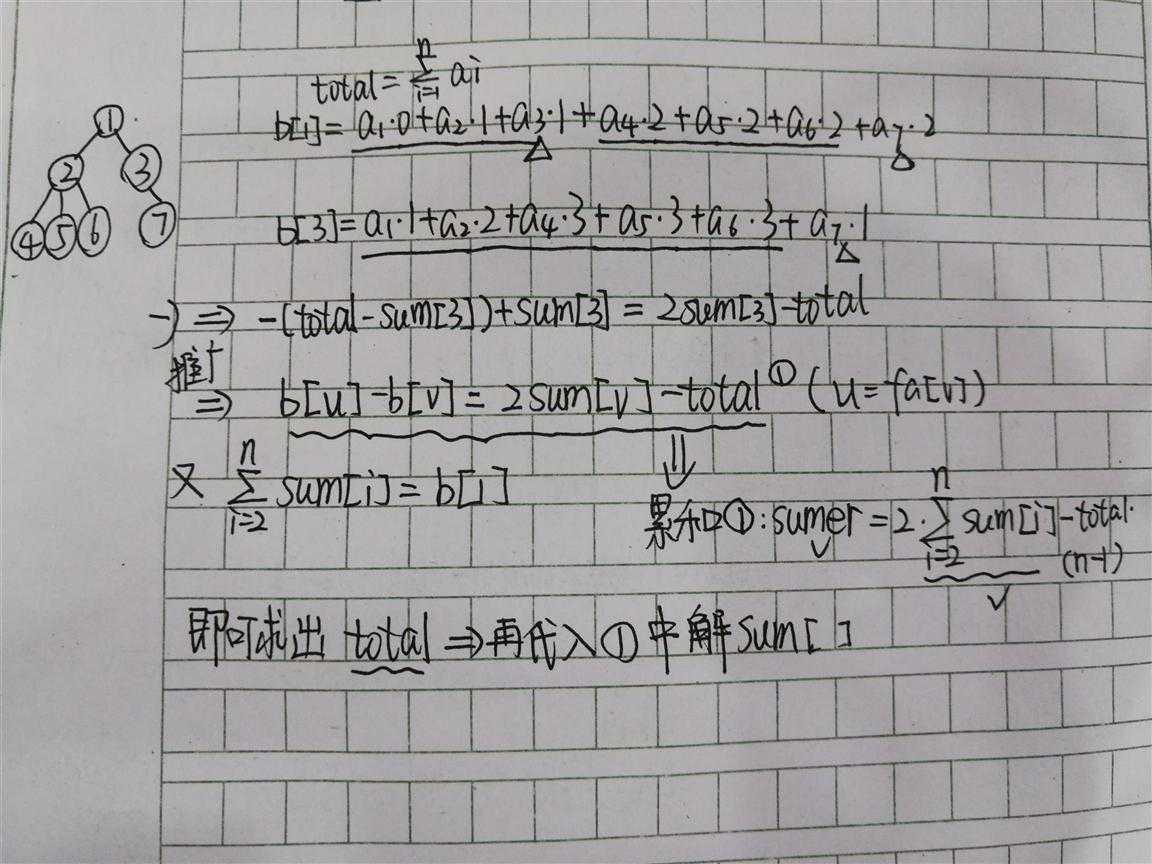 total = n∑i=1 ai
b[1] = a1·0+a2·1+a3·1+a4·2+a5·2+a6·2+a7·2
1
2 3
4 5 6 7
b[3] = a1·1+a2·2+a4·3+a5·3+a6·3+a7·1
-) ⇒ -(total-sum[3])+sum[3] = 2sum[3]-total
推广
⇒ b[u]-b[v] = 2sum[v]-total ① (u=fa[v])
又 n∑i=2 sum[i] = b[1]
⇓
累加①:sumer = 2·n∑i=2 sum[i]-total·
(n-1)
即可求出 total ⇒ 再代入①中解sum[ ]